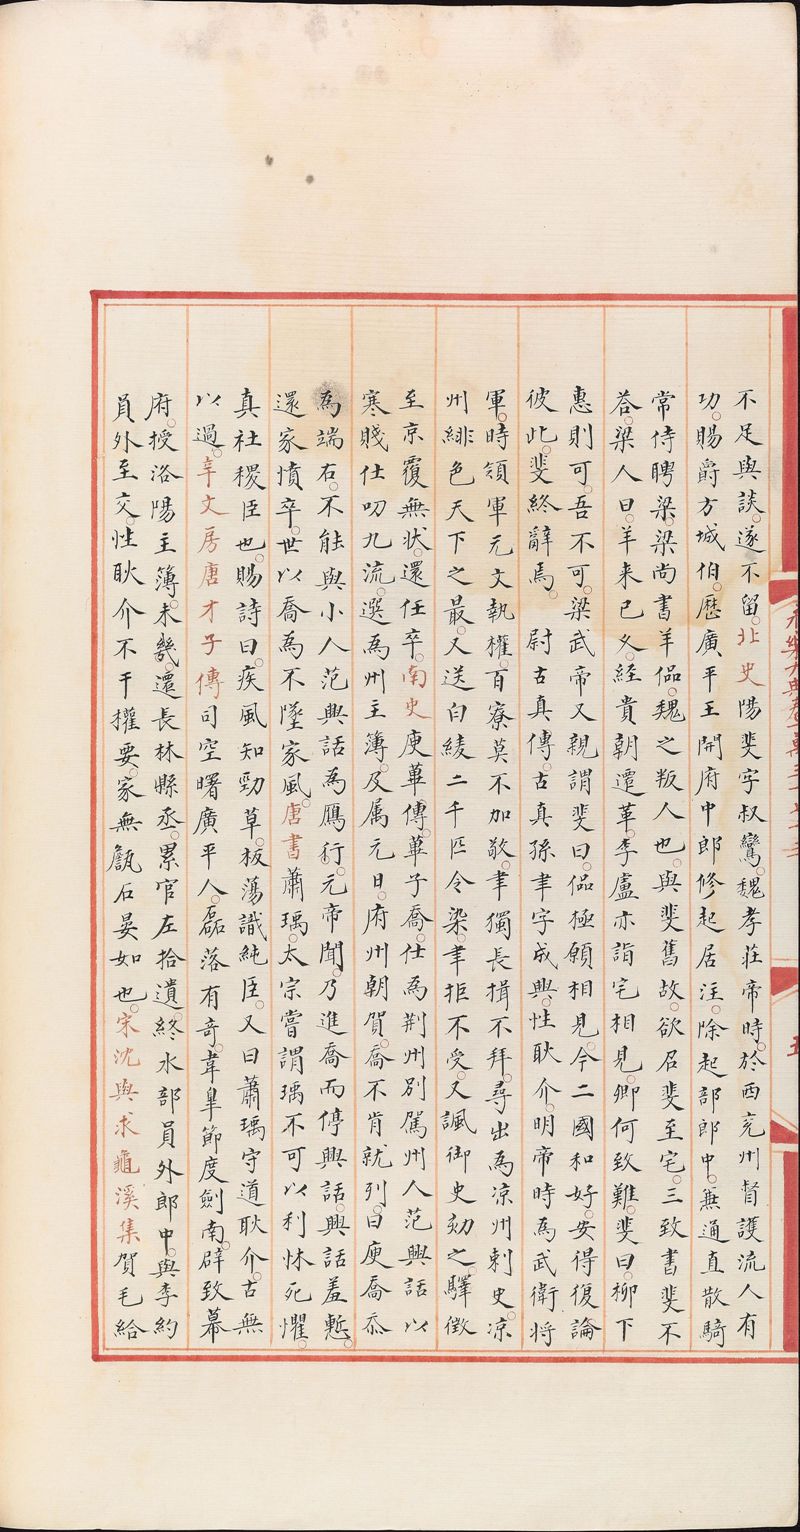 不足與談遂不留北史陽斐字叔鸞魏孝莊帝時於西兖州督護流人有
功賜爵方城伯歷廣平王開府中郎修起居注除起部郎中兼通直散騎
常侍聘梁梁尚書羊侃魏之叛人也與斐舊故欲召斐至宅三致書斐不
荅梁人曰羊来已久經貴朝遷革李盧亦詣宅相見卿何致難斐曰柳下
惠則可吾不可梁武帝又親謂斐曰侃極願相見今二國和好安得復論
彼此斐終辭焉 尉古真傳古真孫聿字成興性耿介明帝時為武衛將
軍時領軍元文執權百寮莫不加敬聿獨長揖不拜尋出為凉州刺史凉
州緋色天下之最又送白綾二千匹令染聿拒不受又諷御史劾之驛徵
至京覆無状還任卒南史庾蓽傳蓽子喬仕為荆州别駕州人范興話以
寒賤仕叨九流選為州主簿及属元日府州朝賀喬不肯就列曰庾喬忝
為端右不能與小人范興話為鴈行元帝聞乃進喬而停興話興話羞慙
還家憤卒世以喬為不墜家風唐書蕭瑀太宗嘗謂瑀不可以利怵死懼
真社稷臣也賜詩曰疾風知勁草板蕩識純臣又曰蕭瑀守道耿介古無
以過辛文房唐才子傳司空曙廣平人磊落有竒韋臯節度劍南辟致幕
府授洛陽主簿未幾還長林縣丞累官左拾遺終水部員外郎中與李約
員外至交性耿介不干權要家無甔石晏如也宋沈與求龜溪集賀毛給